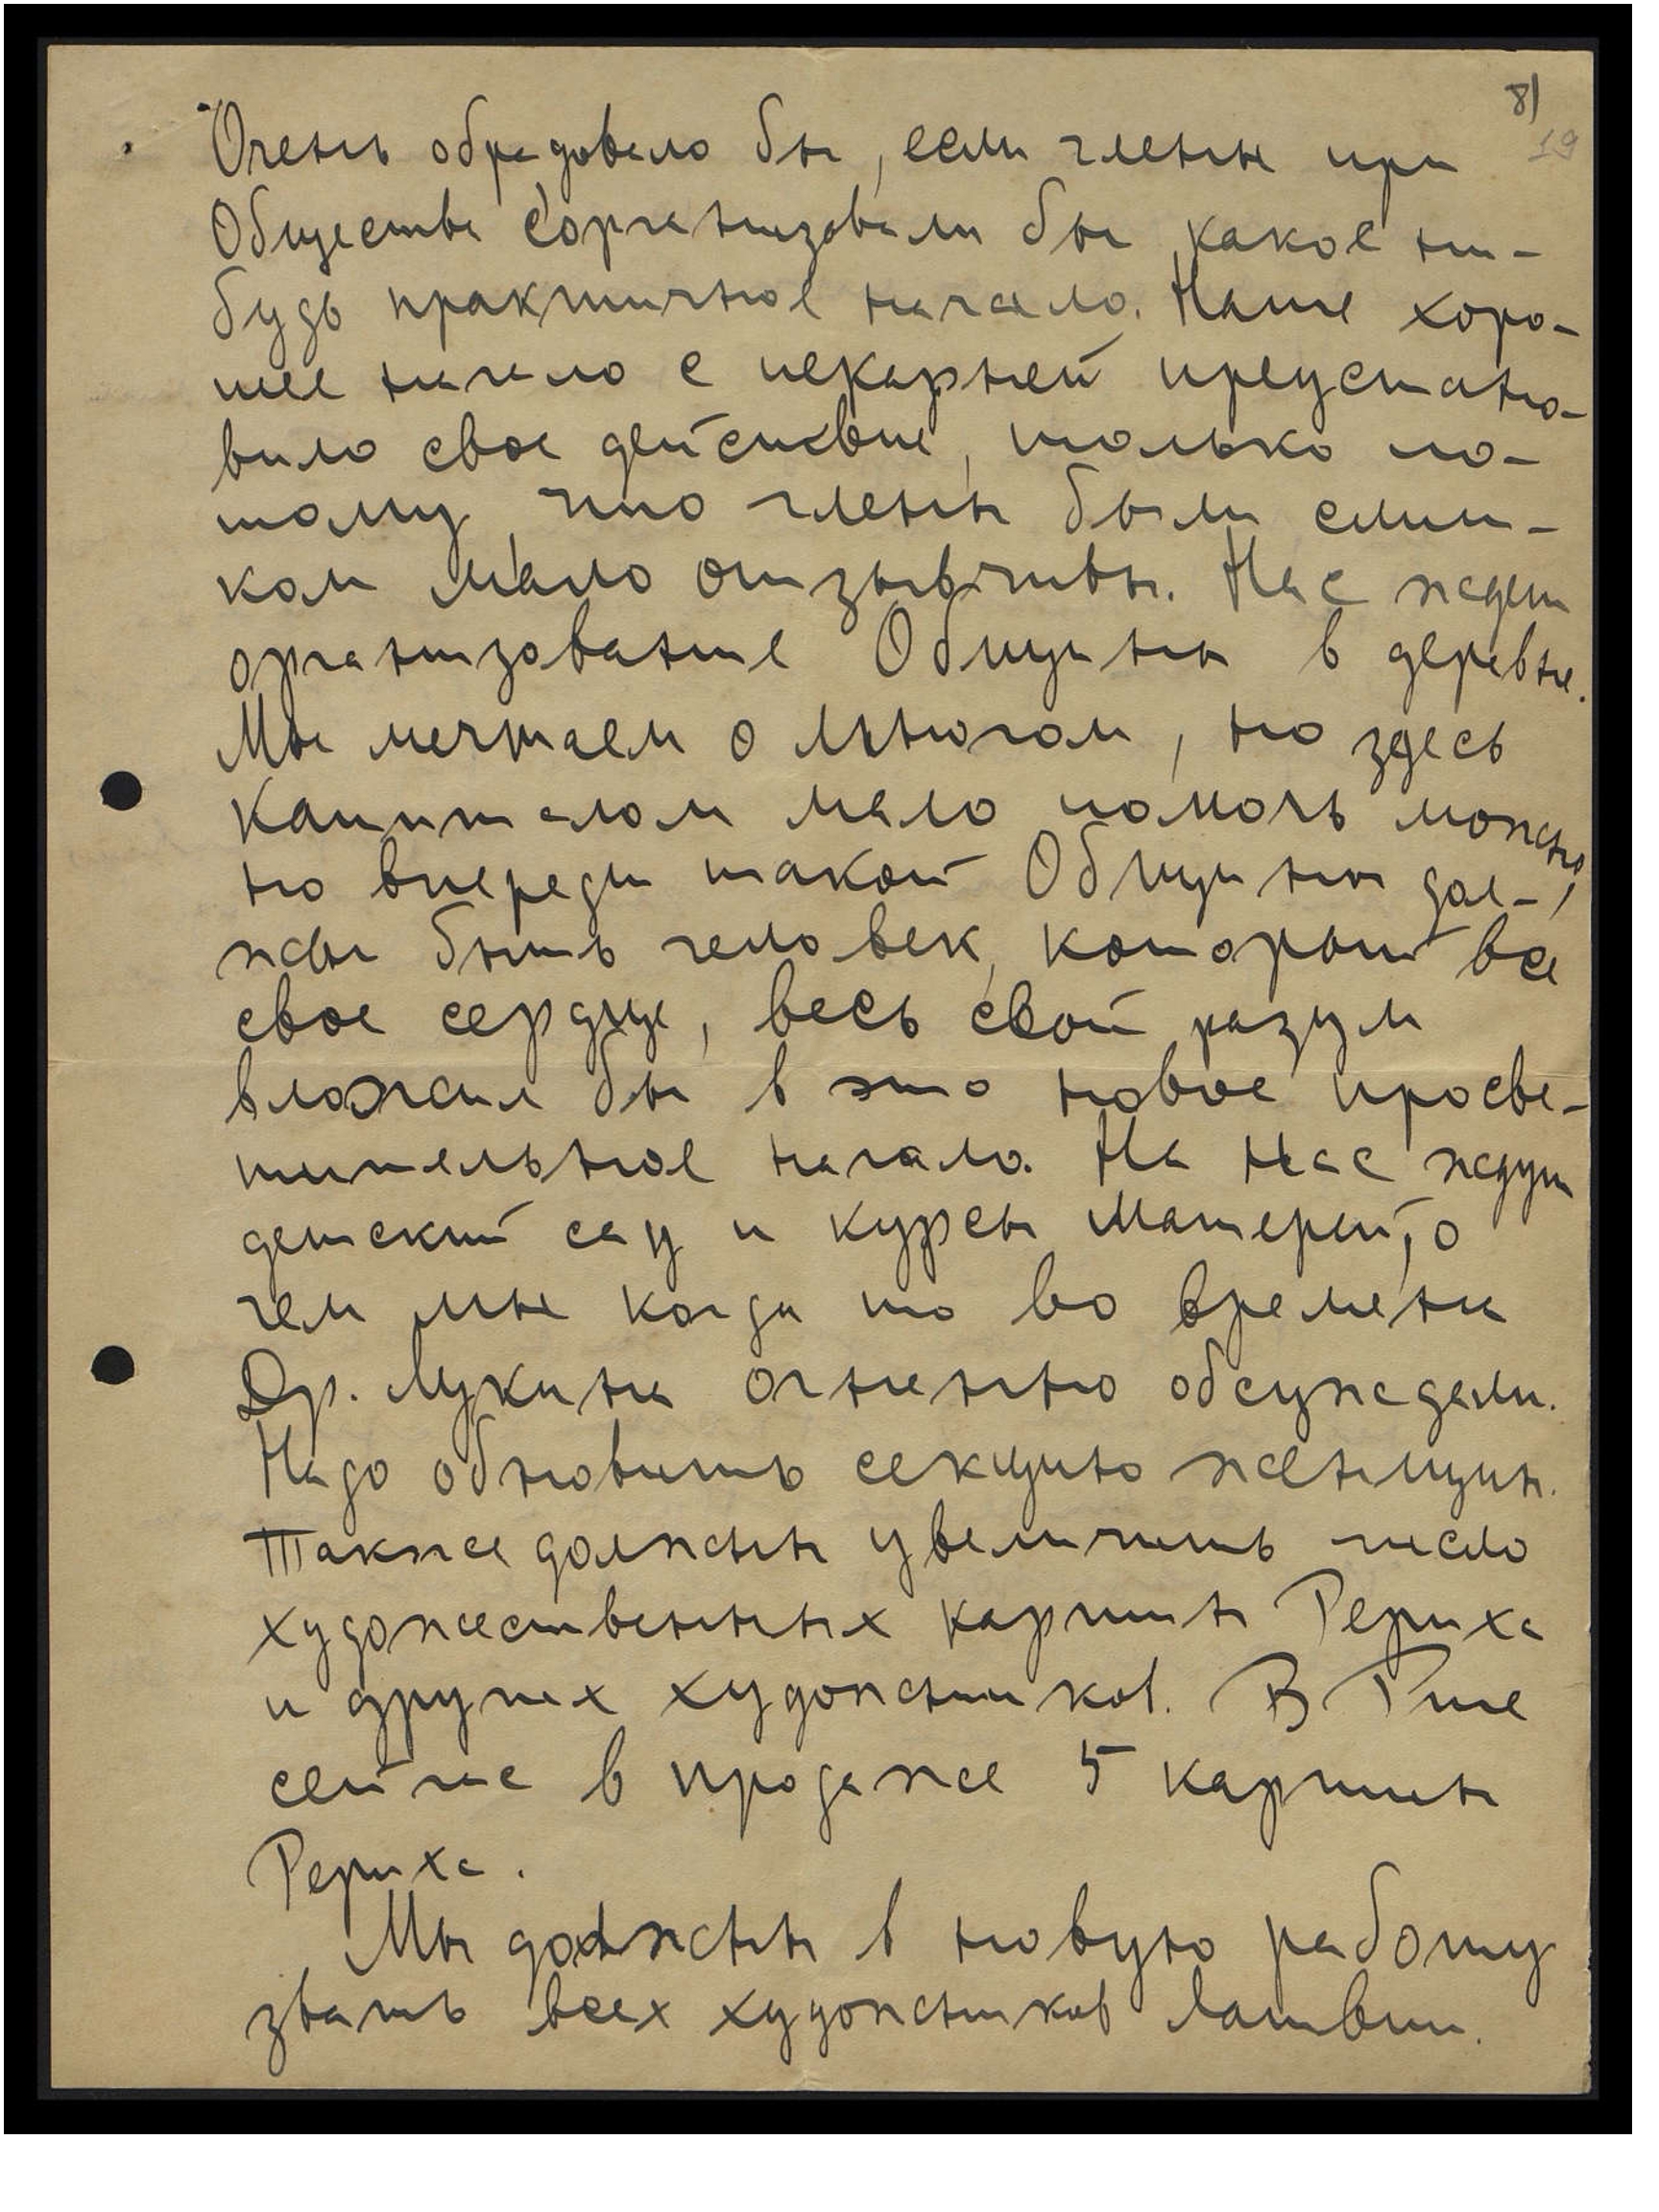 8)
19
Очень обрадовало бы, если члены при
Обществе сорганизовали бы какое ни-
будь практичное начало. Наше хоро-
шее начало с пекарней преустано-
вило свое действие, только по-
тому, что члены были слиш-
ком мало отзывчивы. Нас ждет
организование Общины в деревне.
Мы мечтаем о многом, но здесь
капиталом мало помочь можно,
но впереди такой Общины дол-
жен быть человек, который все
свое сердце, весь свой разум
вложил бы в это новое просве-
тительное начало. На нас ждут
детский сад и курсы Матерей, о
чем мы когда то во времена
Др. Лукина огненно обсуждали.
Надо обновить секцию женщин.
Также должны увеличить число
художественных картин Рериха
и других художников. В Риге
сейчас в продаже 5 картин
Рериха.
Мы должны в новую работу
звать всех художников Латвии.